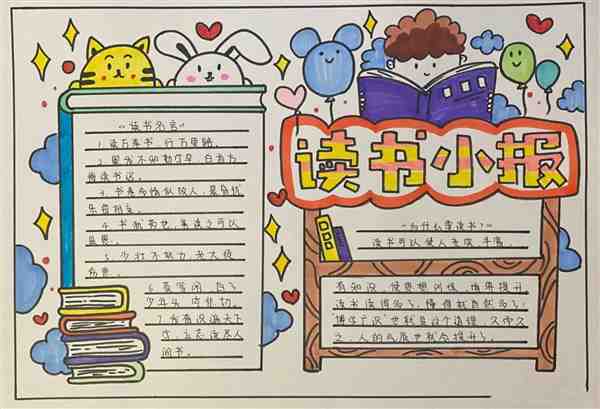 读书小报
~读书名言~
1. 读万卷书，行万里路。
2. 黑发不知勤学早，白首方
悔读书迟。
3. 书卷多情似故人，晨昏忧
乐每相亲。
4. 书犹药也，善读之可以
医愚。
5. 少壮不努力，老大徒
伤悲。
6. 莫等闲，白了
少年头，空悲切。
7. 发奋识遍天下
字，立志读尽人
间书。
~为什么要读书?~
读书可以使人充实，丰富，
有知识，使思想训练，境界提升
读书读得多了，懂得就自然多了，
博学广识也就是这个道理，久而久
之，人的品质也就会提升了。